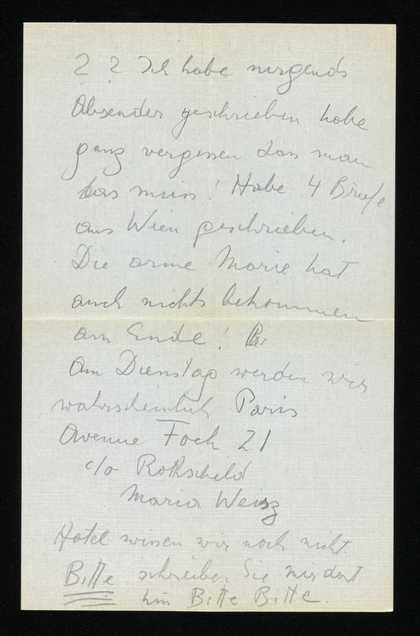 ? ? Ich habe nirgends
Absender geschrieben habe
ganz vergessen dass man
das muss! Habe 4 Briefe
aus Wien geschrieben.
Die arme Marie hat
auch nichts bekommen
am Ende!
Am Dienstag werden wir
wahrscheinlich Paris
Avenue Foch 21
c/o Rothschild
Maria Weisz
Hotel wissen wir noch nicht
Bitte schreiben Sie mir dort
hin Bitte Bitte.